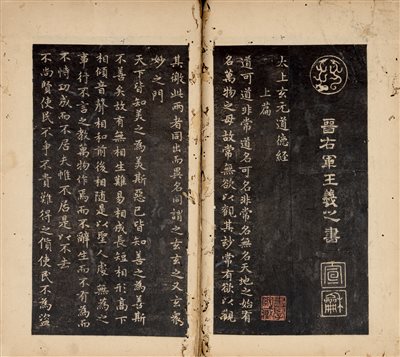 晉右軍王羲之書
宣龢
太上玄元道德經
上篇
道可道非常道名可名非常名無名天地之始有
名萬物之母故常無欲以觀其妙常有欲以觀
其徼此兩者同出而異名同謂之玄玄之又玄衆
妙之門
天下皆知美之為美斯惡已皆知善之為善斯
不善矣故有無相生難易相成長短相形高下
相傾音聲相和前後相隨是以聖人處無為之
事行不言之教萬物作焉而不辭生而不有為而
不恃功成而不居夫惟不居是以不去
不尚賢使民不爭不貴難得之貨使民不為盜